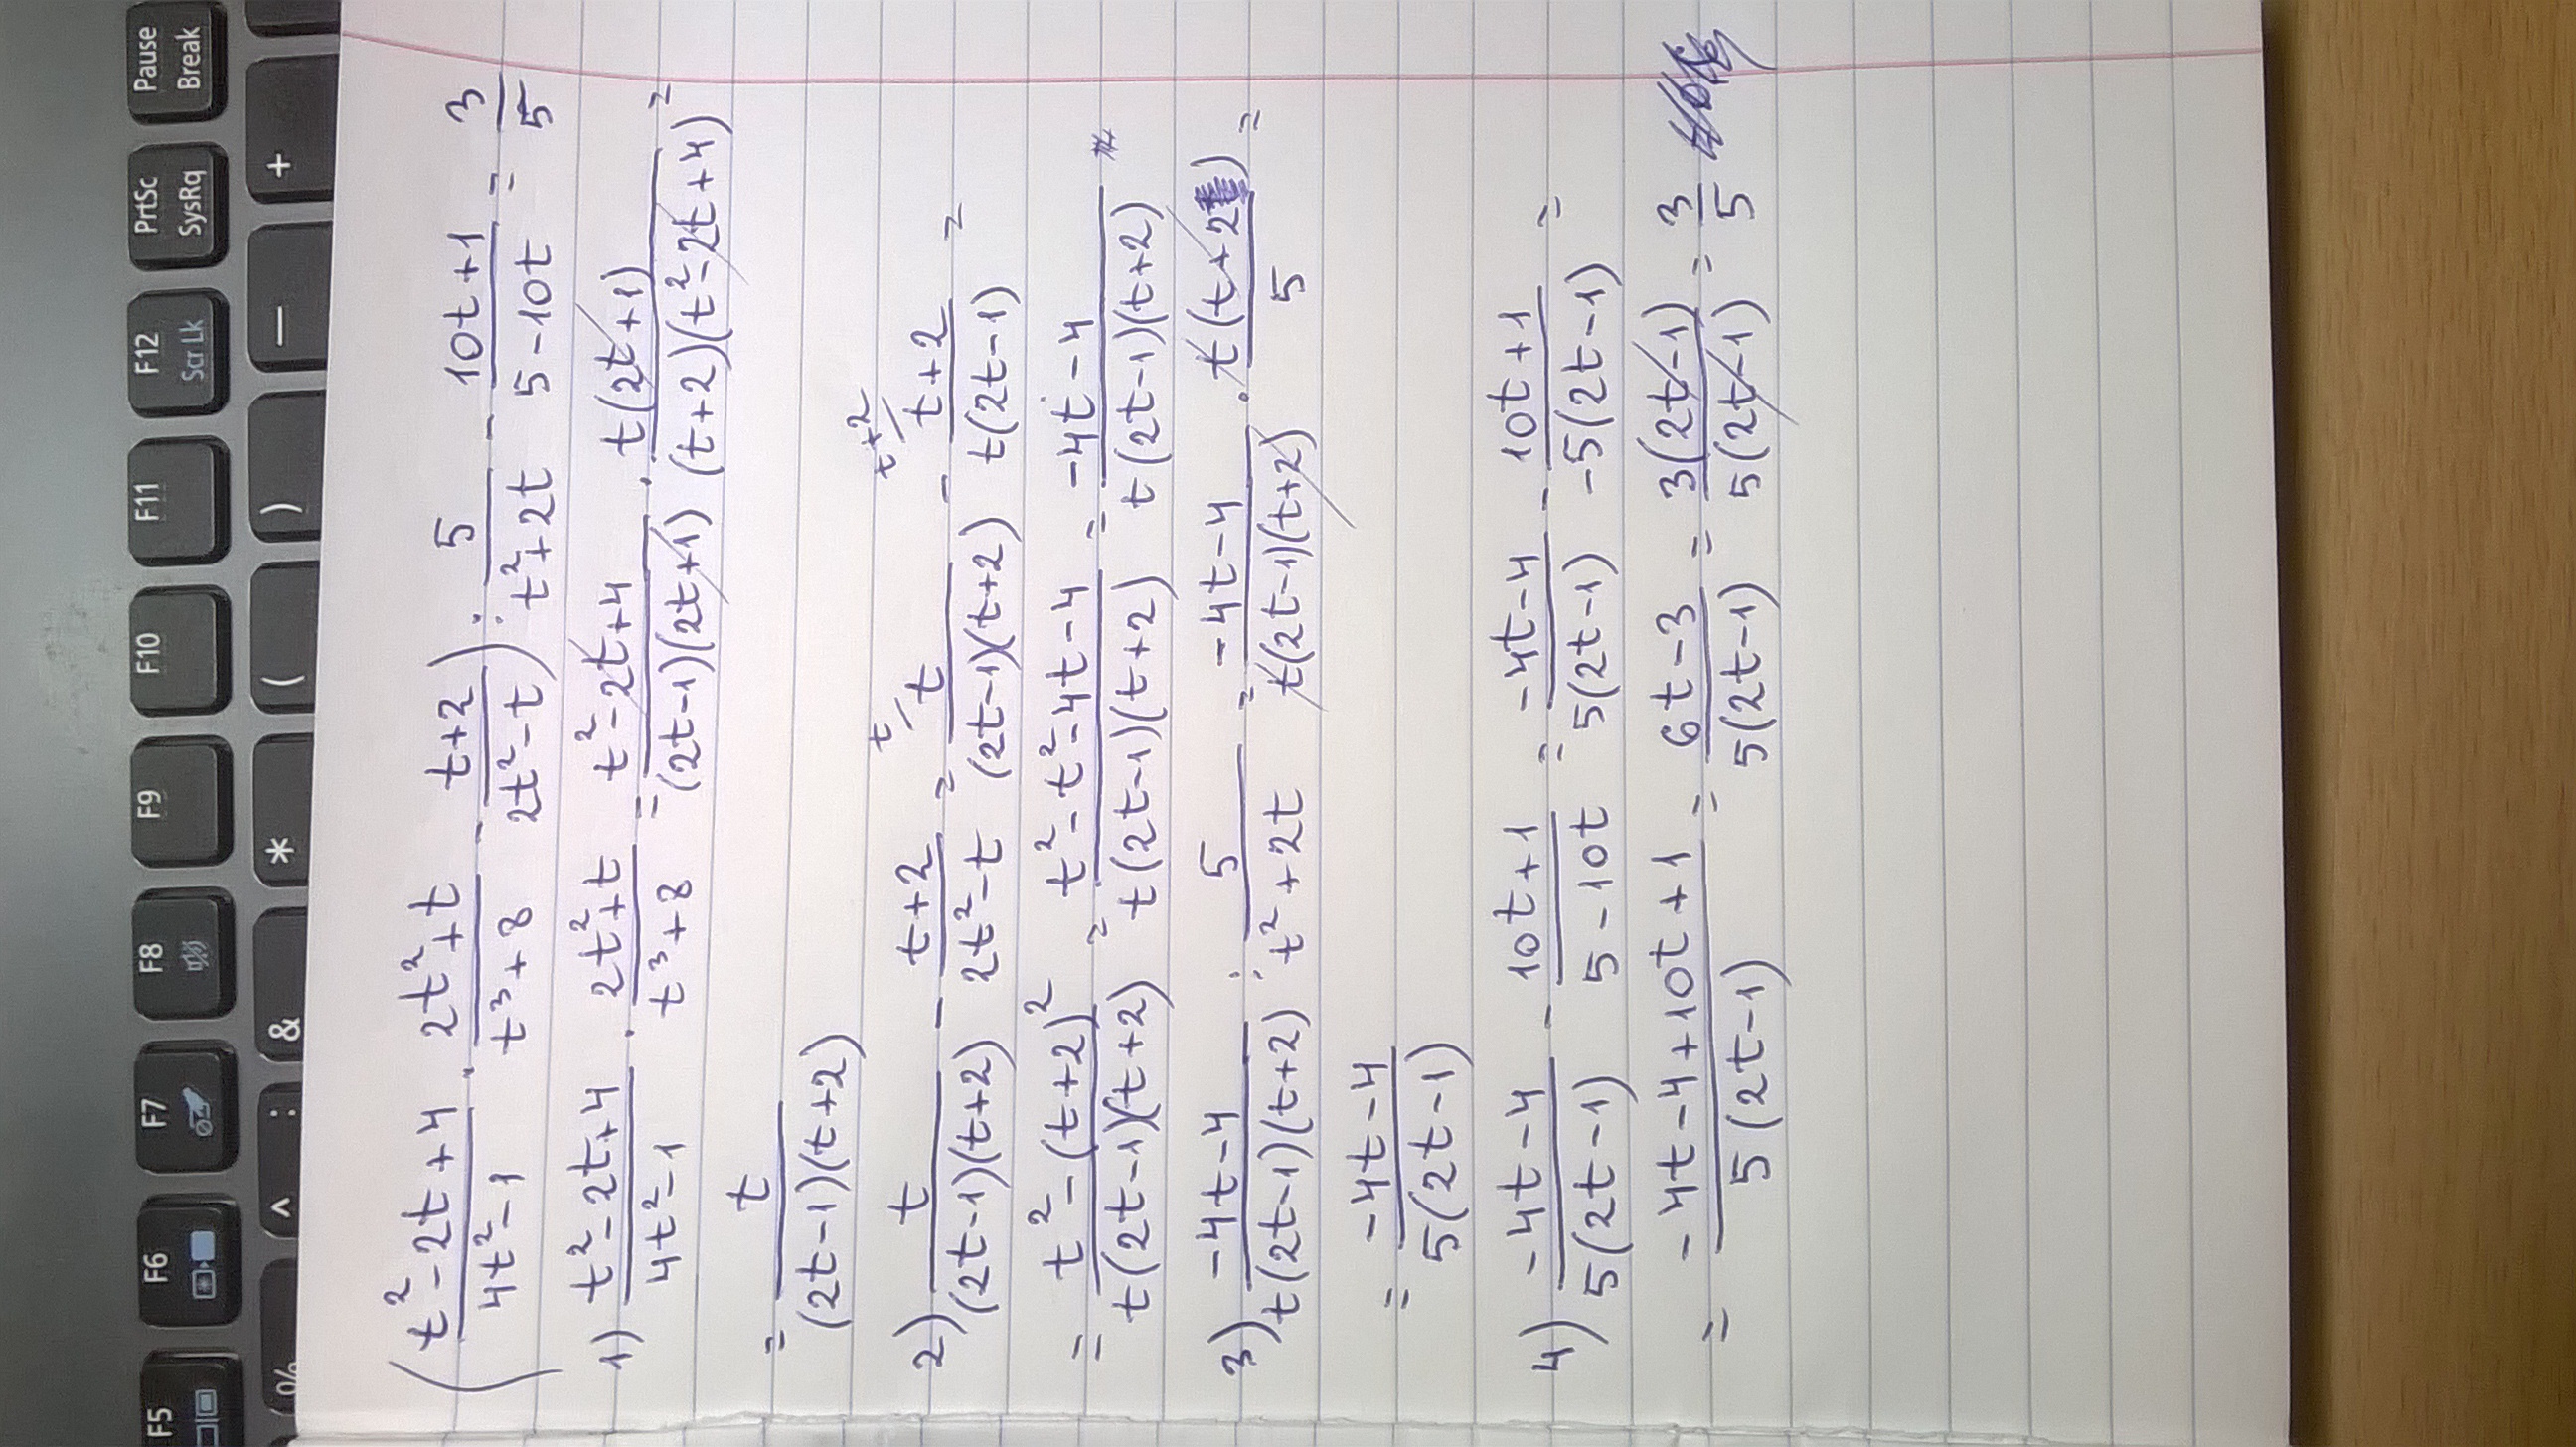 Pause Break
PrtSc SysRq
F12 Scr Lk
F11
F10
F9
F8
F7
F6
F5
+
_
)
(
*
&
^ :
%
(t²-2t+4/4t²-1 · 2t²+t/t³+8 - t+2/2t²-t) : 5/t²+2t - 10t+1/5-10t = 3/5
1) t²-2t+4/4t²-1 · 2t²+t/t³+8 = t²-2t+4/(2t-1)(2t+1) · t(2t+1)/(t+2)(t²-2t+4) =
= t/(2t-1)(t+2)
2) t/(2t-1)(t+2) - t+2/2t²-t = t/ t/(2t-1)(t+2) - t+2/ t+2/t(2t-1) =
= t²-(t+2)²/t(2t-1)(t+2) = t²-t²-4t-4/t(2t-1)(t+2) = -4t-4/t(2t-1)(t+2)
3) -4t-4/t(2t-1)(t+2) : 5/t²+2t = -4t-4/t(2t-1)(t+2) · t(t+2)/5 =
= -4t-4/5(2t-1)
4) -4t-4/5(2t-1) - 10t+1/5-10t = -4t-4/5(2t-1) - 10t+1/-5(2t-1) =
= -4t-4+10t+1/5(2t-1) = 6t-3/5(2t-1) = 3(2t-1)/5(2t-1) = 3/5